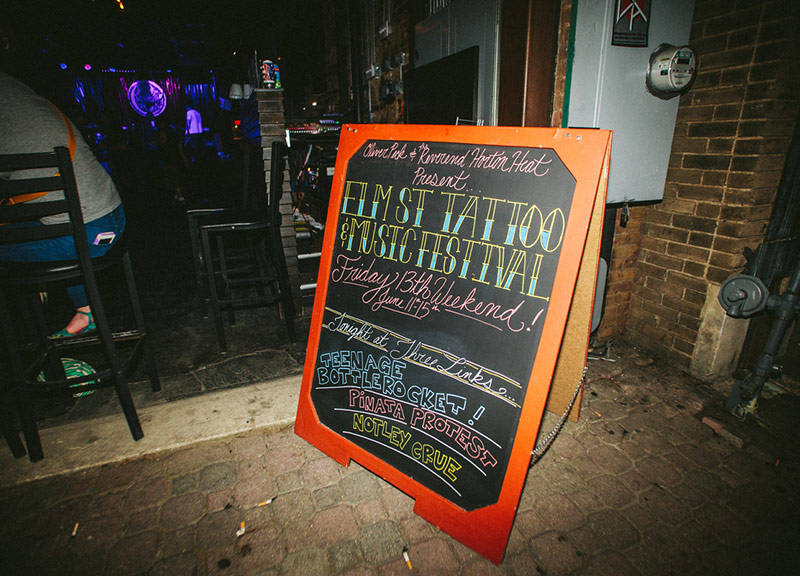 Oliver Peck & The Reverend Horton Heat
Present...
ELM ST TATTOO
& MUSIC FESTIVAL
Friday 13th Weekend!
June 11-15th
Tonight at Three Links...
TEENAGE
BOTTLEROCKET!
PIÑATA PROTEST
NOTLEY CRUE